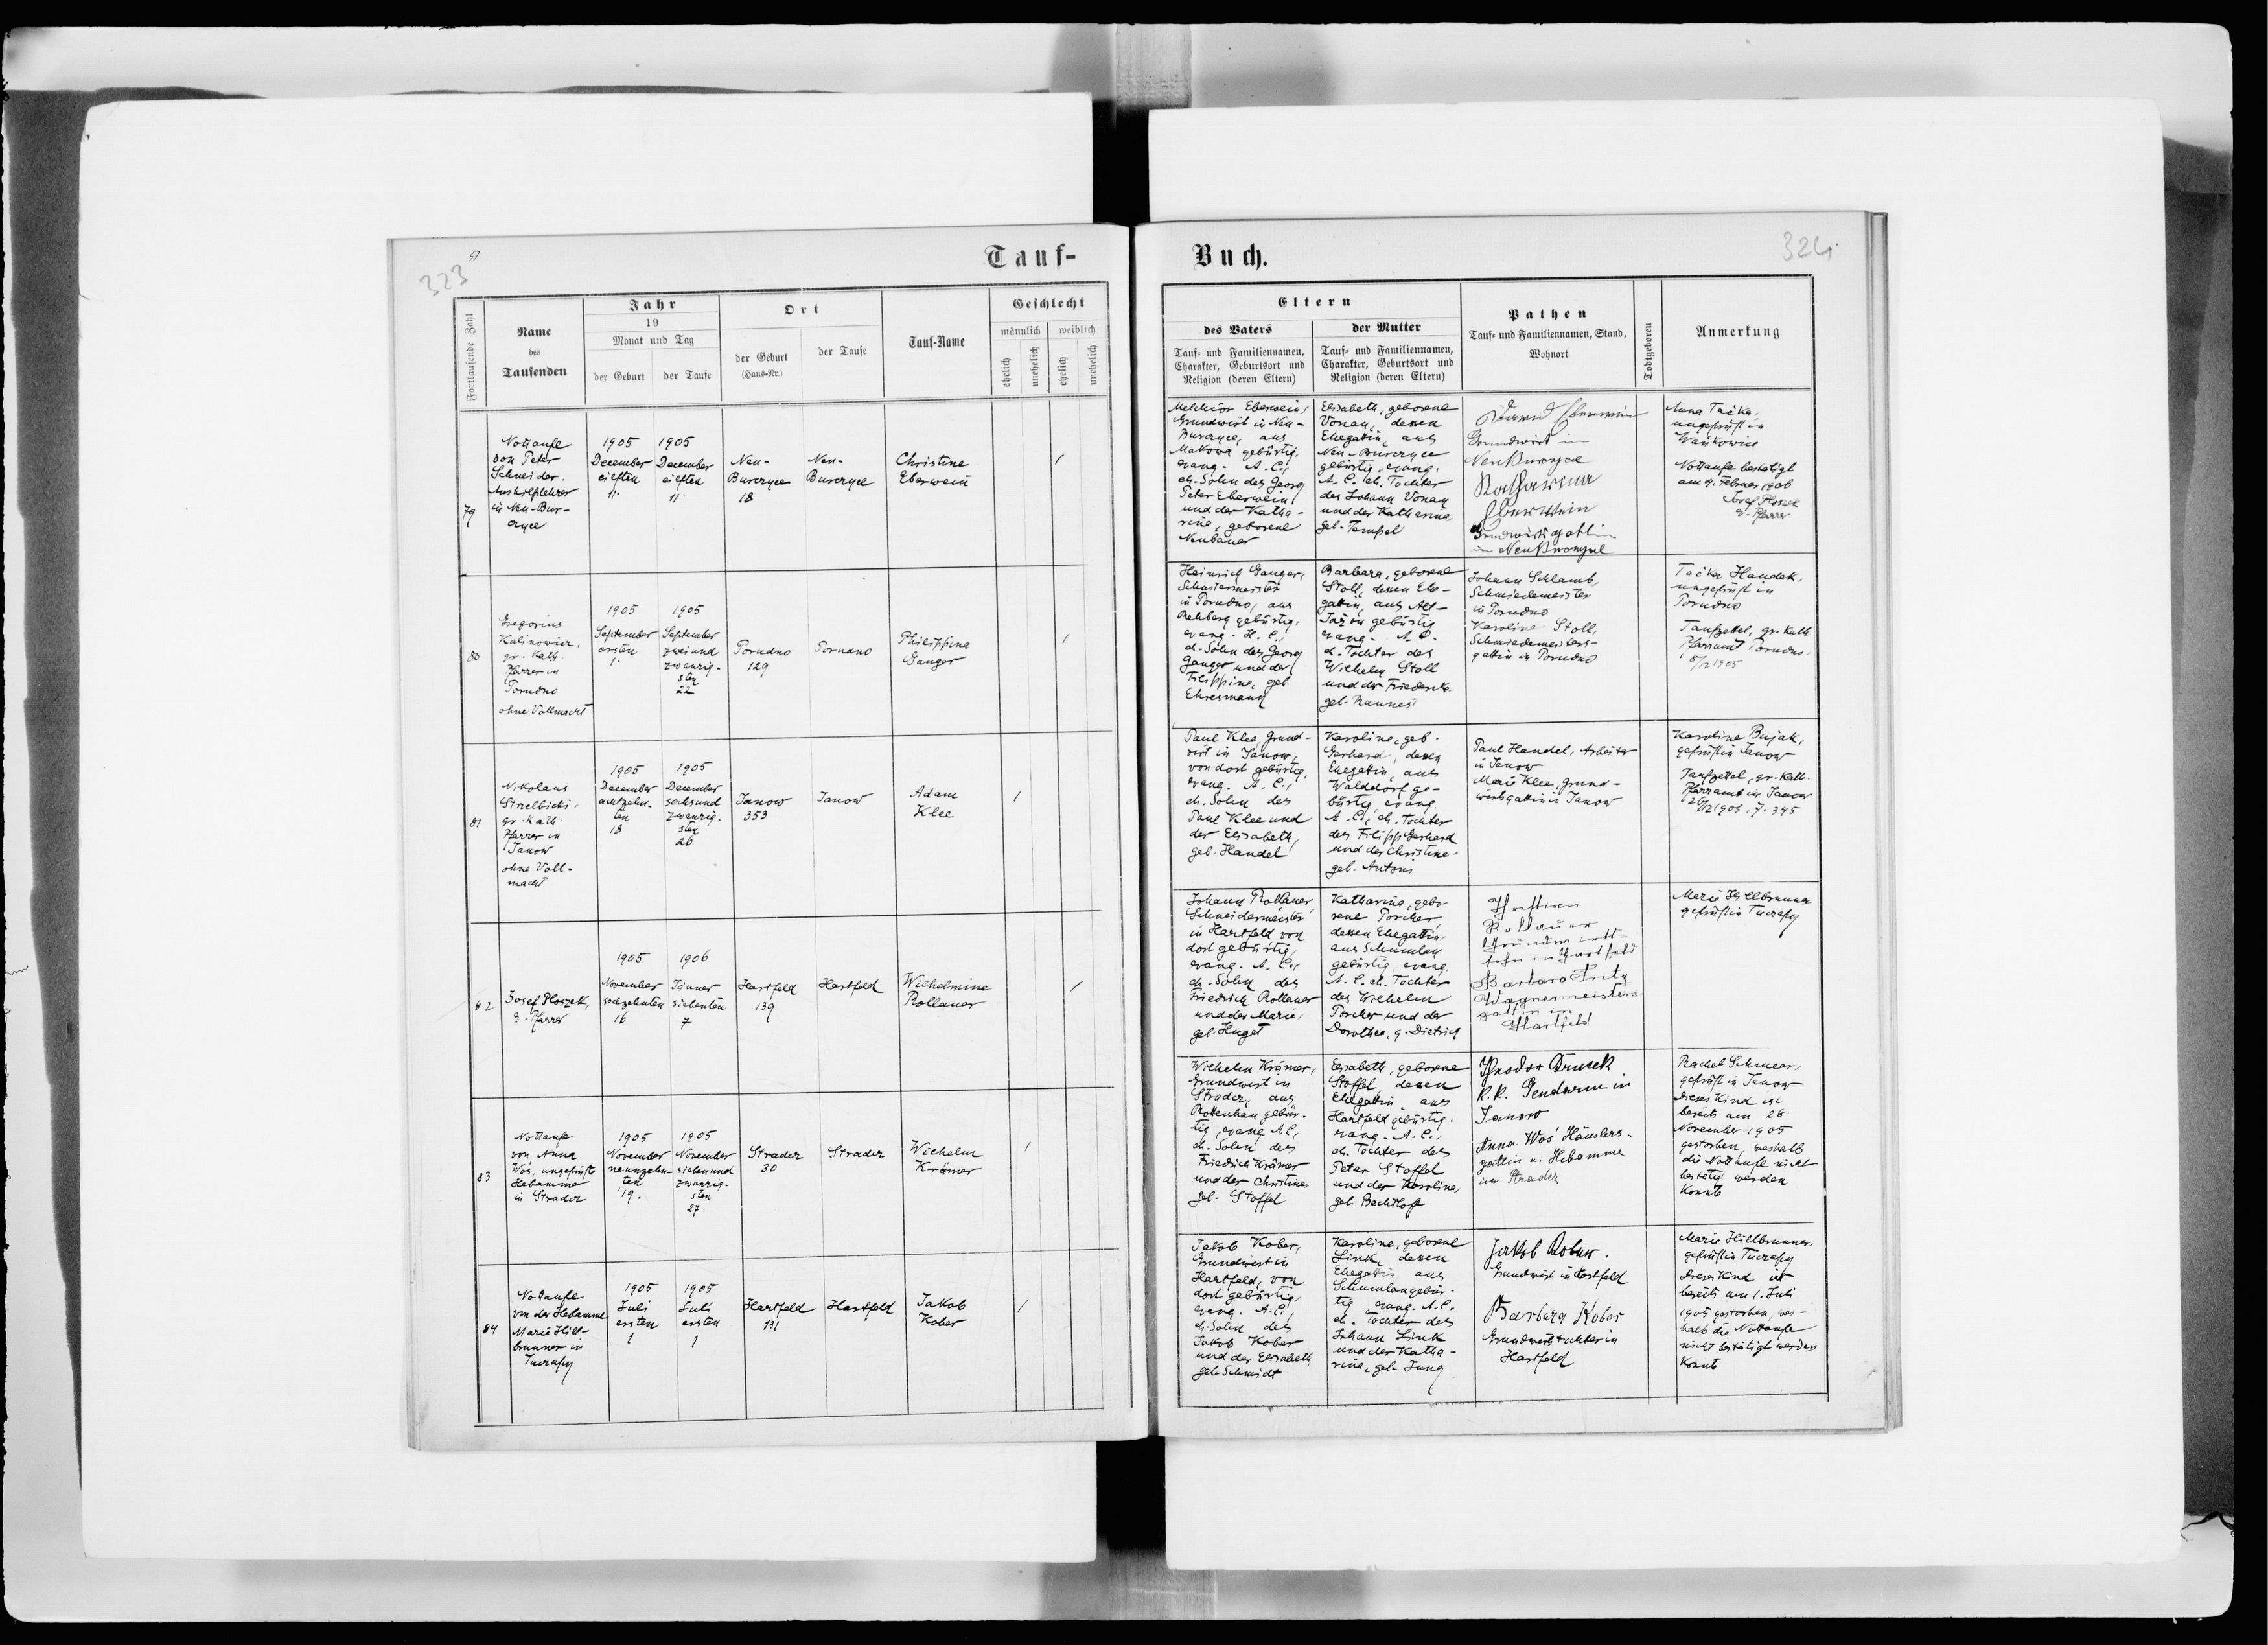 323
51
Tauf-
Fortlaufende Zahl
Name
des
Taufenden
Jahr
19
Monat und Tag
der Geburt
der Taufe
Ort
der Geburt
(Haus-Nr.)
der Taufe
Tauf-Name
Geschlecht
männlich
weiblich
ehelich
unehelich
ehelich
unehelich
79
Nottaufe
von Peter
Schneider.
Aushilfslehrer
in Neu-Bur-
1905
December
eilften
11.
1905
December
eilften
11.
Neu-
18
Neu-
Christine
Eberwein
/
80
Gregorius
Kalinowicz,
gr. Kath.
Pfarrer in
Porudno
ohne Vollmacht
1905
September
ersten
1.
1905
September
zwei und
zwanzig-
sten
22
Porudno
129
Porudno
Philippine
Ganger
/
81
Nikolaus
Strzelbicki,
gr. Kath.
Pfarrer in
Janow
ohne Voll-
macht
1905
December
achtzehn-
ten
18
1905
December
sechsund
zwanzig-
sten
26
Janow
353
Janow
Adam
Klee
/
82
Josef Ploszek,
e. Pfarrer
1905
November
sechzehnten
16
1906
Jänner
siebenten
7
Hartfeld
139
Hartfeld
Wilhelmine
Rollauer
/
83
Nottaufe
von Anna
Woś, ungeprüfte
Hebamme
in Stradcz
1905
November
neunzehn-
ten
19.
1905
November
siebenund
zwanzig-
sten
27.
Stradcz
30
Stradcz
Wilhelm
Krämer
/
84
Nottaufe
von der Hebamme
Marie Hill-
brunner in
Tuczapy
1905
Juli
ersten
1
1905
Juli
ersten
1
Hartfeld
131
Hartfeld
Jakob
Kober
/
Buch.
324.
Eltern
des Vaters
Tauf- und Familiennamen,
Charakter, Geburtsort und
Religion (deren Eltern)
der Mutter
Tauf- und Familiennamen,
Charakter, Geburtsort und
Religion (deren Eltern)
Pathen
Tauf- und Familiennamen, Stand,
Wohnort
Todtgeboren
Anmerkung
Melchior Eberwein,
Grundwirt in Neu-
aus
Makowa gebürtig,
evang. A.C.,
eh. Sohn des Georg
Peter Eberwein
und der Katha-
rina, geborene
Neubauer
Elisabeth, geborene
Vonau, dessen
Ehegattin, aus
gebürtig, evang.
A. C. eh. Tochter
des Johann Vonau
und der Katharina
geb. Tempel
Eberwein
Grundwirt in
Katharina
Eberwein
Grundwirtsgattin
in
Anna Tačka,
ungeprüft in
Nottaufe bestätigt
am 9. Februar 1906
Josef Ploszek
e. Pfarrer
Heinrich Ganger,
Schustermeister
in Porudno, aus
Rehberg gebürtig,
evang. H. C.,
eh. Sohn des Georg
Ganger und der
Filippine, geb.
Ehresmann
Barbara, geborene
Stoll, dessen Ehe-
gattin, aus Alt-
gebürtig
evang. A. C.
eh. Tochter des
Wilhelm Stoll
und der Friedericke
geb.
Johann Schlamb,
Schmiedemeister
in Porudno
Karoline Stoll,
Schmiedemeisters-
gattin in Porudno
Tačka Handek,
ungeprüft in
Porudno
Taufzettel, gr. Kath.
Pfarramt Porudno,
5/12 1905
Paul Klee, Grund-
wirt in Janow,
von dort gebürtig,
evang. A. C.,
eh. Sohn des
Paul Klee und
der Elisabeth,
geb. Handel
Karoline, geb.
Gerhard, dessen
Ehegattin, aus
Walddorf ge-
bürtig, evang.
A. C., eh. Tochter
des Filipp Gerhard
und der Christine
geb. Antoni
Paul Handel, Arbeiter
in Janow
Marie Klee, Grund-
wirtsgattin in Janow
Karoline Bujak,
geprüft in Janow
Taufzettel, gr. Kath.
Pfarramt in Janow
26/12 1905. Z. 345
Johann Rollauer
Schneidermeister
in Hartfeld von
dort gebürtig,
evang. A. C.,
eh. Sohn des
Friedrich Rollauer
und der Marie,
geb. Huget
Katharina, gebo-
rene Porcher
dessen Ehegattin,
aus Schumlau
gebürtig, evang.
A. C. eh. Tochter
des Wilhelm
Porcher und der
Dorothea, g. Dietrich
Christian
Rollauer
Grundwirts-
sohn in Hartfeld
Barbara Fritz
Wagnermeisters-
gattin in
Hartfeld
Marie Hillbrunner
geprüft in Tuczapy
Wilhelm Krämer,
Grundwirt in
Stradcz, aus
Rottenhan gebür-
tig, evang. A.C.,
eh. Sohn des
Friedrich Krämer
und der Christine
geb. Stoffel
Elisabeth, geborene
Stoffel, dessen
Ehegattin, aus
Hartfeld gebürtig.
evang. A. C.,
eh. Tochter des
Peter Stoffel
und der Karoline,
geb. Bechtloff
K.K. Gendarm in
Janow
Anna Woś Häuslers-
gattin u. Hebamme
in Stradcz
Rachel Schmeer,
geprüft in Janow
Dieses Kind ist
bereits am 28.
November 1905
gestorben, weshalb
die Nottaufe nicht
bestätigt werden
konnte
Jakob Kober,
Grundwirt in
Hartfeld, von
dort gebürtig,
evang. A. C.,
eh. Sohn des
Jakob Kober
und der Elisabeth
geb. Schmidt
Karoline, geborene
Link, dessen
Ehegattin aus
Schumlau gebür-
tig, evang. A.C.
eh. Tochter des
Johann Link
und der Katha-
rina, geb. Jung
Jakob Kober.
Grundwirt in Hartfeld
Barbara Kober
Grundwirtstochter in
Hartfeld
Marie Hillbrunner,
geprüft in Tuczapy
Dieses Kind ist
bereits am 1. Juli
1905 gestorben, wes-
halb die Nottaufe
nicht bestätigt werden
konnte